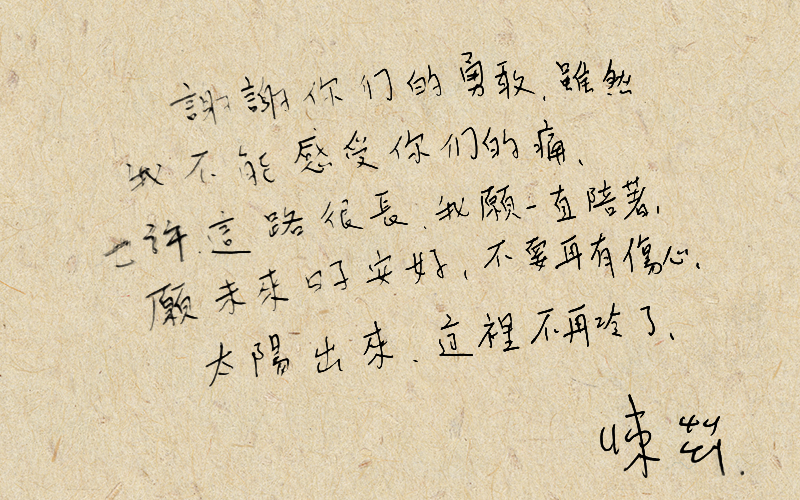 謝謝你们的勇敢,雖然
我不能感受你们的痛、
也許這路很長、我願一直陪著,
願未來日子安好,不要再有傷心、
太陽出來、這裡不再冷了、